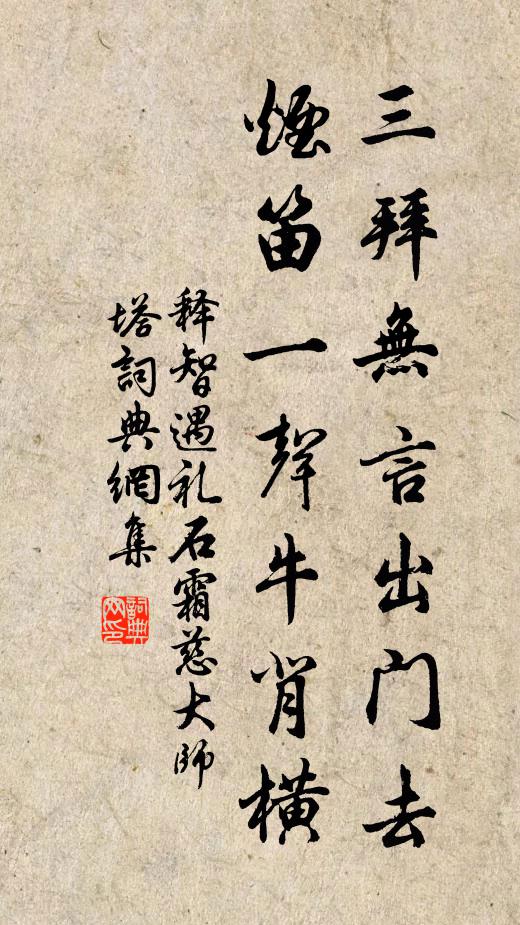 三拜無言出门去
煙笛一聲牛背橫
释智遇礼石霜慈大师
塔詞典網集
詞典网印